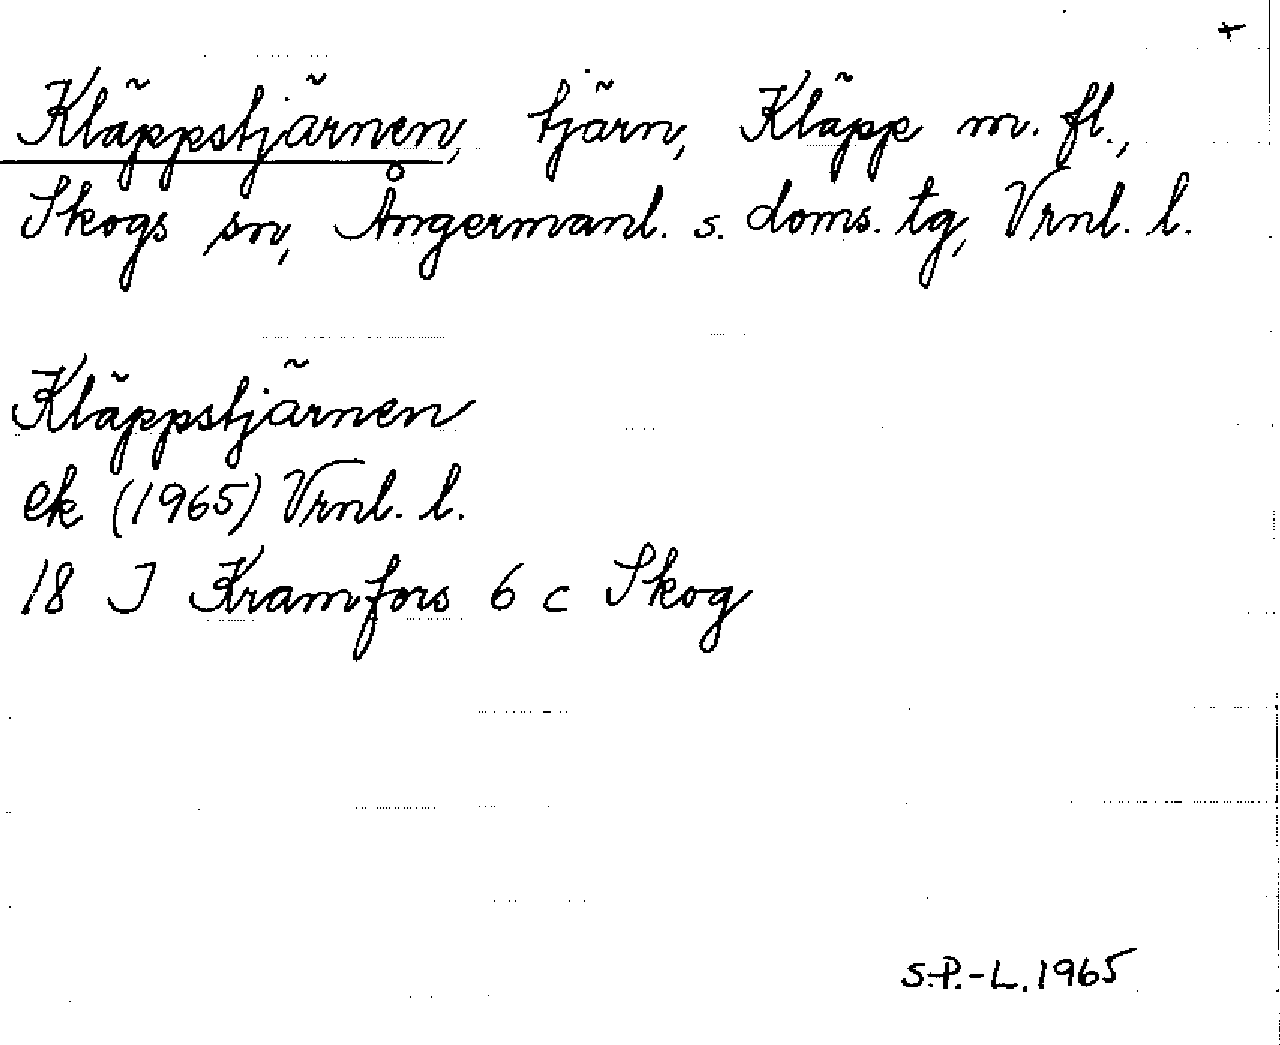 +
Kläppstjärnen, tjärn, Kläpp m. fl.,
Skogs sn, Ångermanl. s. doms. tg, Vrnl. l.
Kläppstjärnen
ek (1965) Vrnl. l.
18 J Kramfors 6 c Skog
S.P.-L. 1965